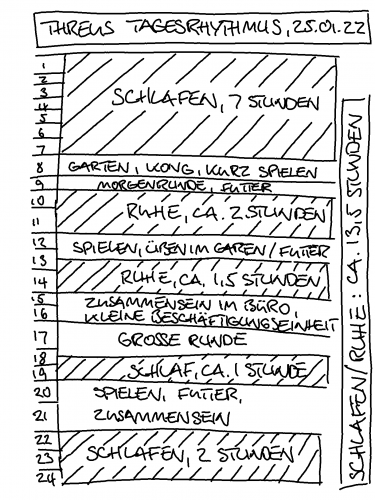 THREUS TAGESRHYTHMUS, 25.01.22
1
2
3
4
5
6
7
SCHLAFEN, 7 STUNDEN
8
GARTEN, KONG, KURZ SPIELEN
9
MORGENRUNDE, FUTTER
10
11
RUHE, CA. 2 STUNDEN
12
SPIELEN, ÜBEN IM GARTEN / FUTTER
13
14
RUHE, CA. 1,5 STUNDEN
15
ZUSAMMENSEIN IM BÜRO,
16
KLEINE BESCHÄFTIGUNGSEINHEIT
17
GROSSE RUNDE
18
19
SCHLAF, CA. 1 STUNDE
20
SPIELEN, FUTTER,
21
ZUSAMMENSEIN
22
23
24
SCHLAFEN, 2 STUNDEN
SCHLAFEN/RUHE: CA. 13,5 STUNDEN